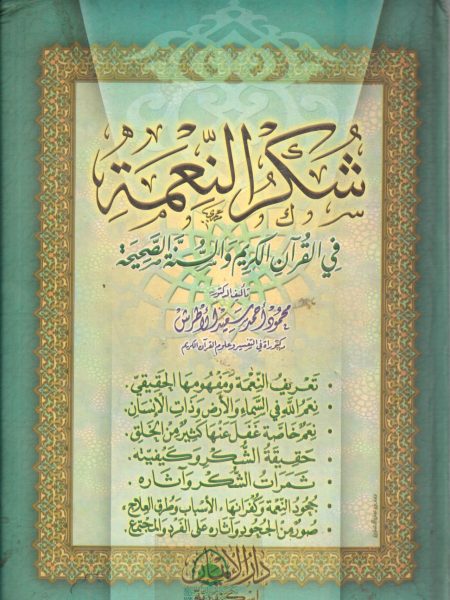 شُكْرُ النِّعْمَةِ
في القُرآن الكريم والسُّنّة الصَّحِيحَة
تأليف الدكتور
محمود أحمد سعيد الأطرش
دكتوراه في التفسير وعلوم القرآن الكريم
• تعريف النّعمة ومفهومها الحقيقيّ.
• نِعَمُ الله في السَّماء والأرض وذات الإنسان.
• نِعَمٌ خاصّة غفل عنها كثير من الخلق.
• حقيقة الشُّكر وكيفيّته.
• ثمرات الشُّكر وآثاره.
• جحود النّعمة وكفرانها، الأسباب وطرق العلاج.
• صور من الجحود وآثاره على الفرد والمجتمع.
دار الإيمان